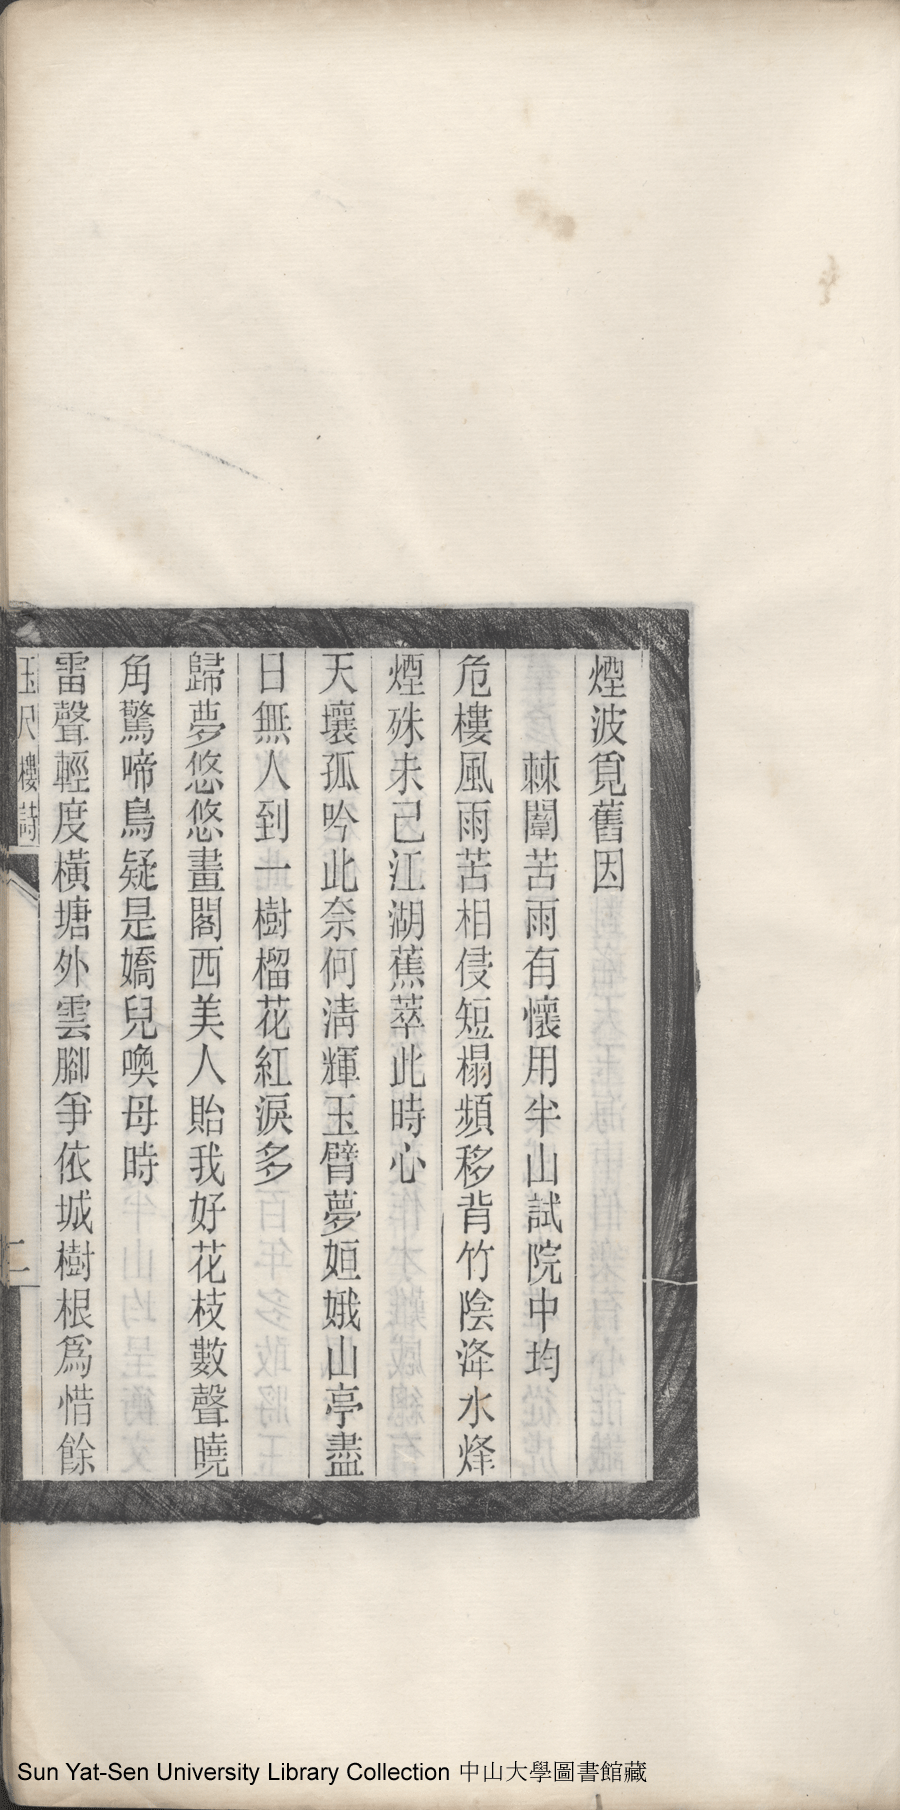 煙波覓舊因
棘闈苦雨有懷用半山試院中均
危樓風雨苦相侵短榻頻移背竹陰洚水烽
煙殊未已江湖蕉萃此時心
天壤孤吟此奈何淸輝玉臂夢姮娥山亭盡
日無人到一樹榴花紅淚多
歸夢悠悠畫閣西美人貽我好花枝數聲曉
角驚啼鳥疑是嬌兒喚母時
雷聲輕度橫塘外雲腳爭依城樹根爲惜餘
玉尺樓詩
二
Sun Yat-Sen University Library Collection 中山大學圖書館藏